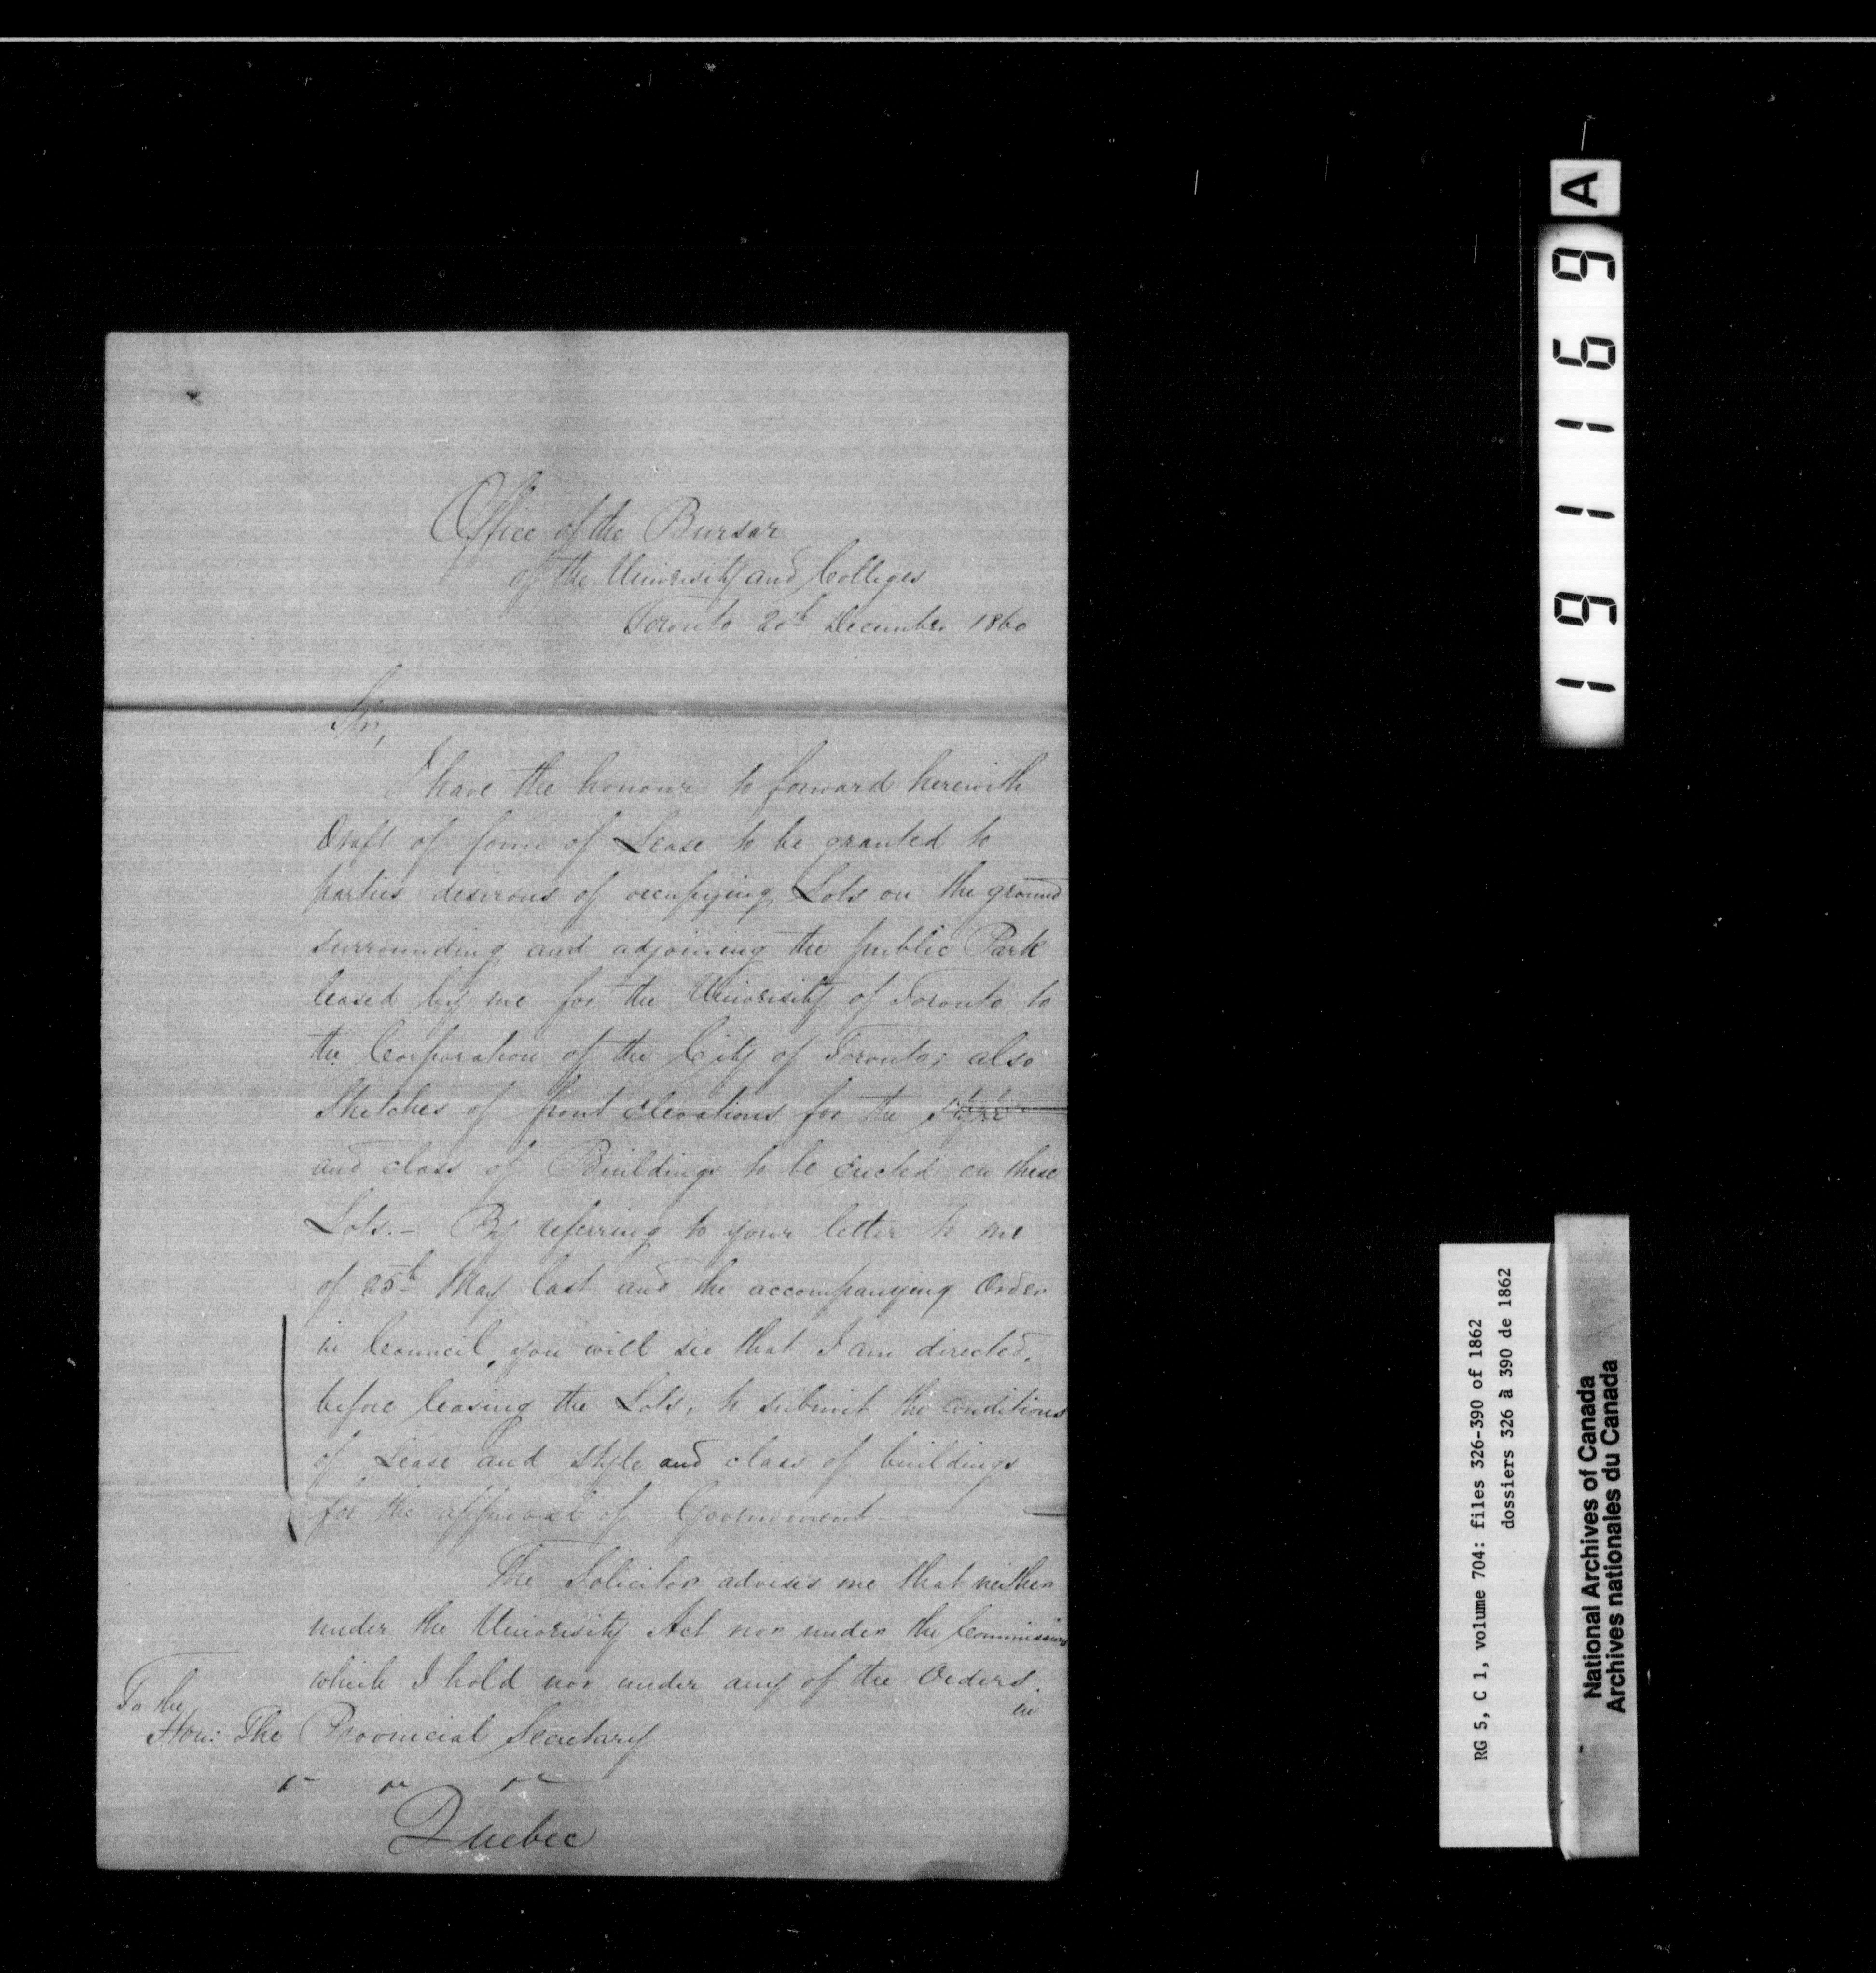 Office of the Bursar
of the University and Colleges
Toronto 20th December 1860
Sir,
I have the honour to forward herewith
Draft of form of Lease to be granted to
parties desirous of occupying Lots on the ground
surrounding and adjoining the public Park
leased by me for the University of Toronto to
the Corporation of the City of Toronto; also
Sketches of front elevations for the style
and class of Buildings to be erected on these
Lots.- By referring to your letter to me
of 25th May last and the accompanying Order
in Council, you will see that I am directed,
before leasing the Lots, to submit the conditions
of Lease and style and class of buildings
for the approval of Government
The Solicitor advises me that neither
under the University Act nor under the Commission
which I hold nor under any of the Orders.
in
To the
Hon: The Provincial Secretary
" " "
Quebec
191169 A
RG 5, C 1, volume 704: files 326-390 of 1862
dossiers 326 à 390 de 1862
National Archives of Canada
Archives nationales du Canada